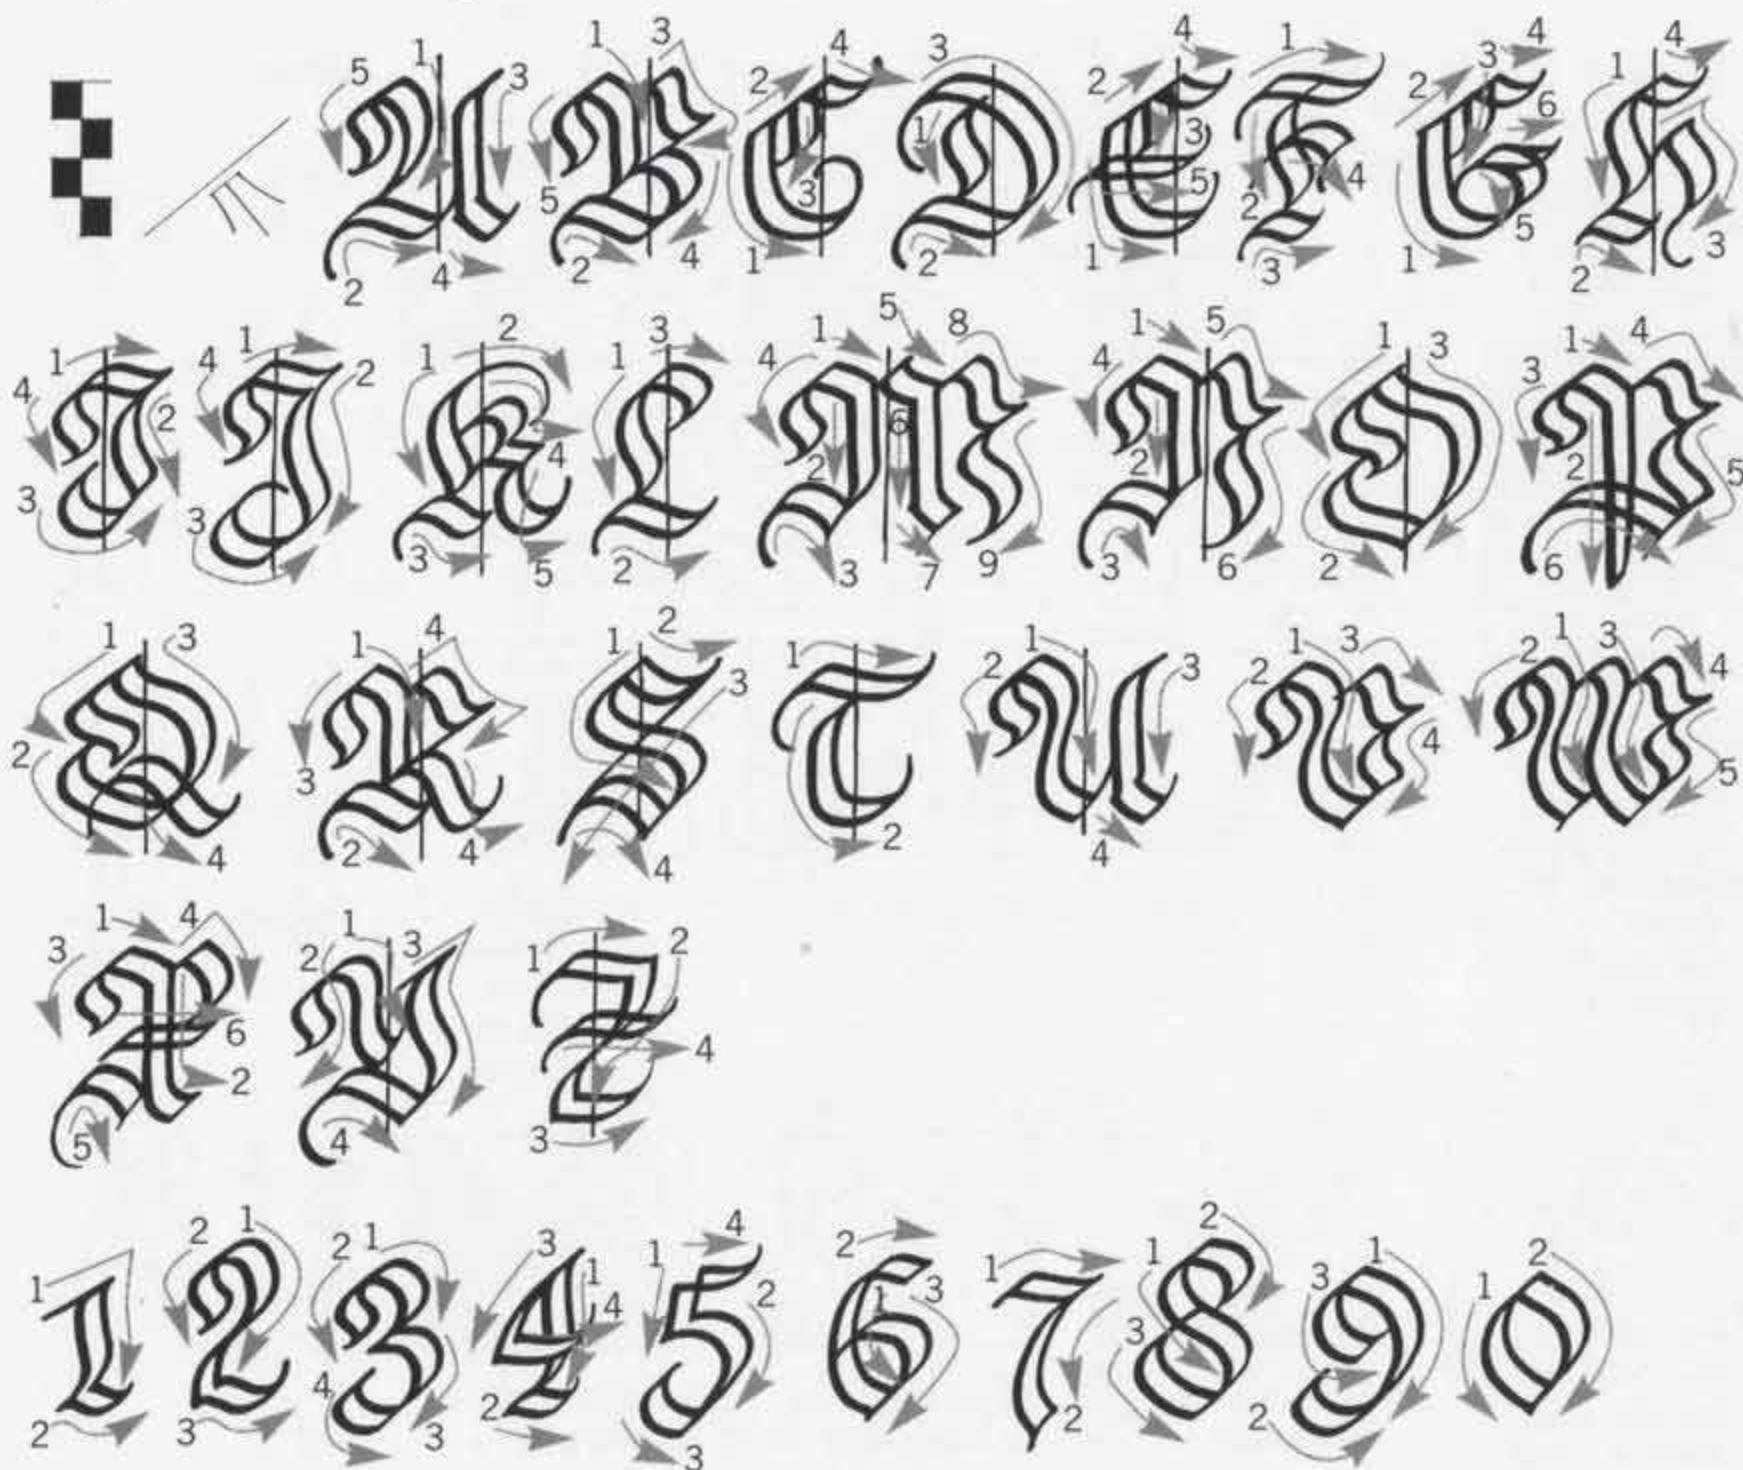 A B C D E F G H
I J K L M N O P
Q R S T U V W
X Y Z
1 2 3 4 5 6 7 8 9 0